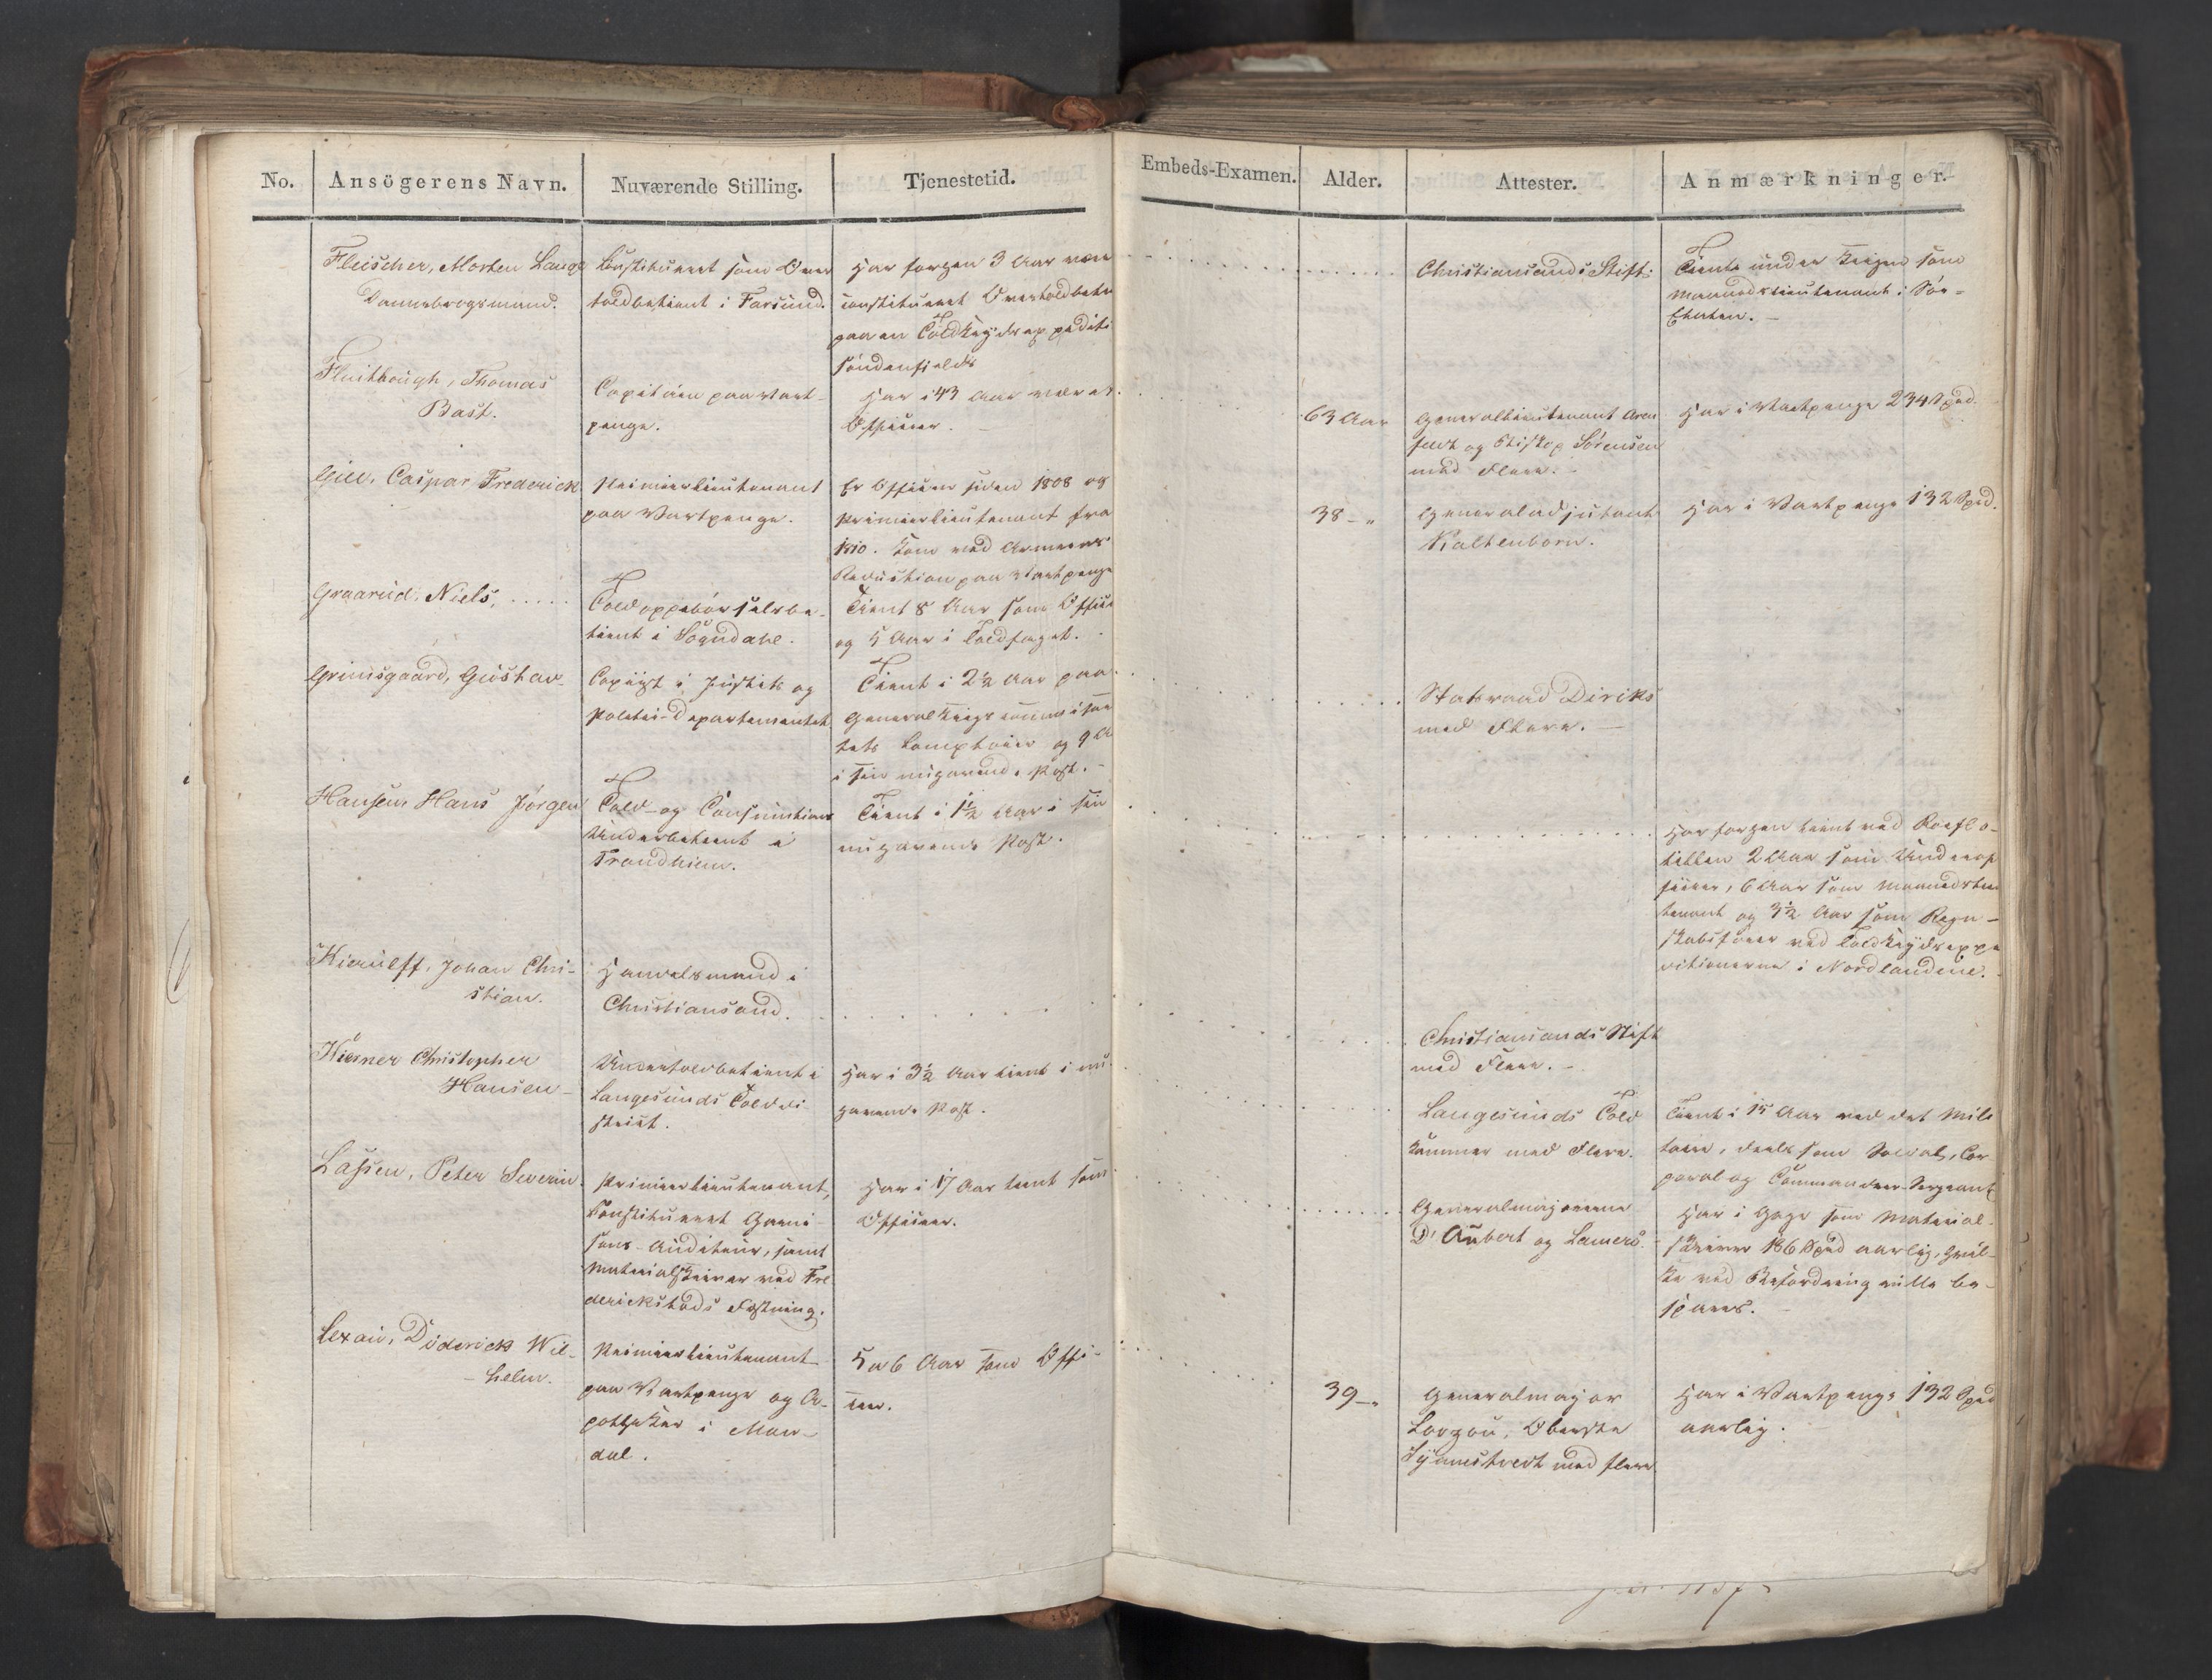 No.
Ansögerens Navn.
Nuværende Stilling.
Tjenestetid.
Embeds-Examen.
Alder.
Attester.
Anmærkninger.
Fleischer, Morten Lange
Dannebrogsmand.
Constitueret som Over
toldbetient i Farsund.
Har forhen 3 Aar været
constitueret Overtoldbetn
paa en Toldkrydsexpediti
söndenfields
Christiansands Stift
Tiente under Krigen som
Maanedslieutenant i Söe-
Etaten.
Fleithough, Thomas
Bast.
Capitain paa Vart-
penge.
Har i 43 Aar været
Officier.
63 Aar
Generallieutenant Aren
feldt og Biskop Sörensen
med Flere.
Har i Vartpenge 234 Spd.
Gill, Caspar Frederick
Premierlieutenant
paa Vartpenge.
Er Officier siden 1808 og
Premierlieutenant fra
1810. Kom ved Armeens
Reduction paa Vartpenge
38 - "
Generaladjutant
Kaltenborn.
Har i Vartpenge 132 Spd.
Graarud, Niels, .....
Toldoppebörselsbe-
tient i Sogndahl.
Tient 8 Aar som Offici
og 5 Aar i Toldfaget.
Grimsgaard, Gustav
Copiist i Justits og
Politie-Departementet
Tient i 2½ Aar paa
Generalkrigscommissari
tets Comptoir og 9 A
i sin nuhavende Post.
Statsraad Diriks
med Flere.
Hansen, Hans Jörgen
Told- og Consumtions
Underbetient i
Trondhiem.
Tient i 1½ Aar i sin
nuhavende Post.
Har forhen tient ved Roeflo-
tillen 2 Aar som Underof
ficier, 6 Aar som Maanedslieu
tenant og 3½ Aar som Regn-
skabsförer ved Toldkrydsexpe
ditionerne i Nordlandene.
Kierulff, Johan Chri-
stian.
Handelsmand i
Christiansand.
Christiansands Stift
med Flere.
Kierner Christopher
Hansen
Undertoldbetient i
Langesunds Tolddi
strict.
Har i 3½ Aar tient i nu
havende Post.
Langesunds Told
kammer med Flere.
Tient i 15 Aar ved det Mili
taire, deels som Soldat, Cor
poral og Commandeer-Sergeant
Lassen, Peter Severin.
Premierlieutenant,
Constitueret Garni
sons-Auditeur, samt
Materialskriver ved Fre
derickstads Fæstning.
Har i 17 Aar tient som
Officier.
Generalmajorerne
D'Aubert og Lamers.
Har i Gage som Material-
skriver 186 Spd aarlig, hvil-
ke ved Befordring ville be-
spares.
Lexau, Diderick Wil-
helm.
Premierlieutenant
paa Vartpenge og A-
potheker i Man-
dal.
5 a 6 Aar som Offi-
cier.
39 - "
Generalmajor
Lowzow, Oberste
med flere
Har i Vartpenge 132 Spd
aarlig.